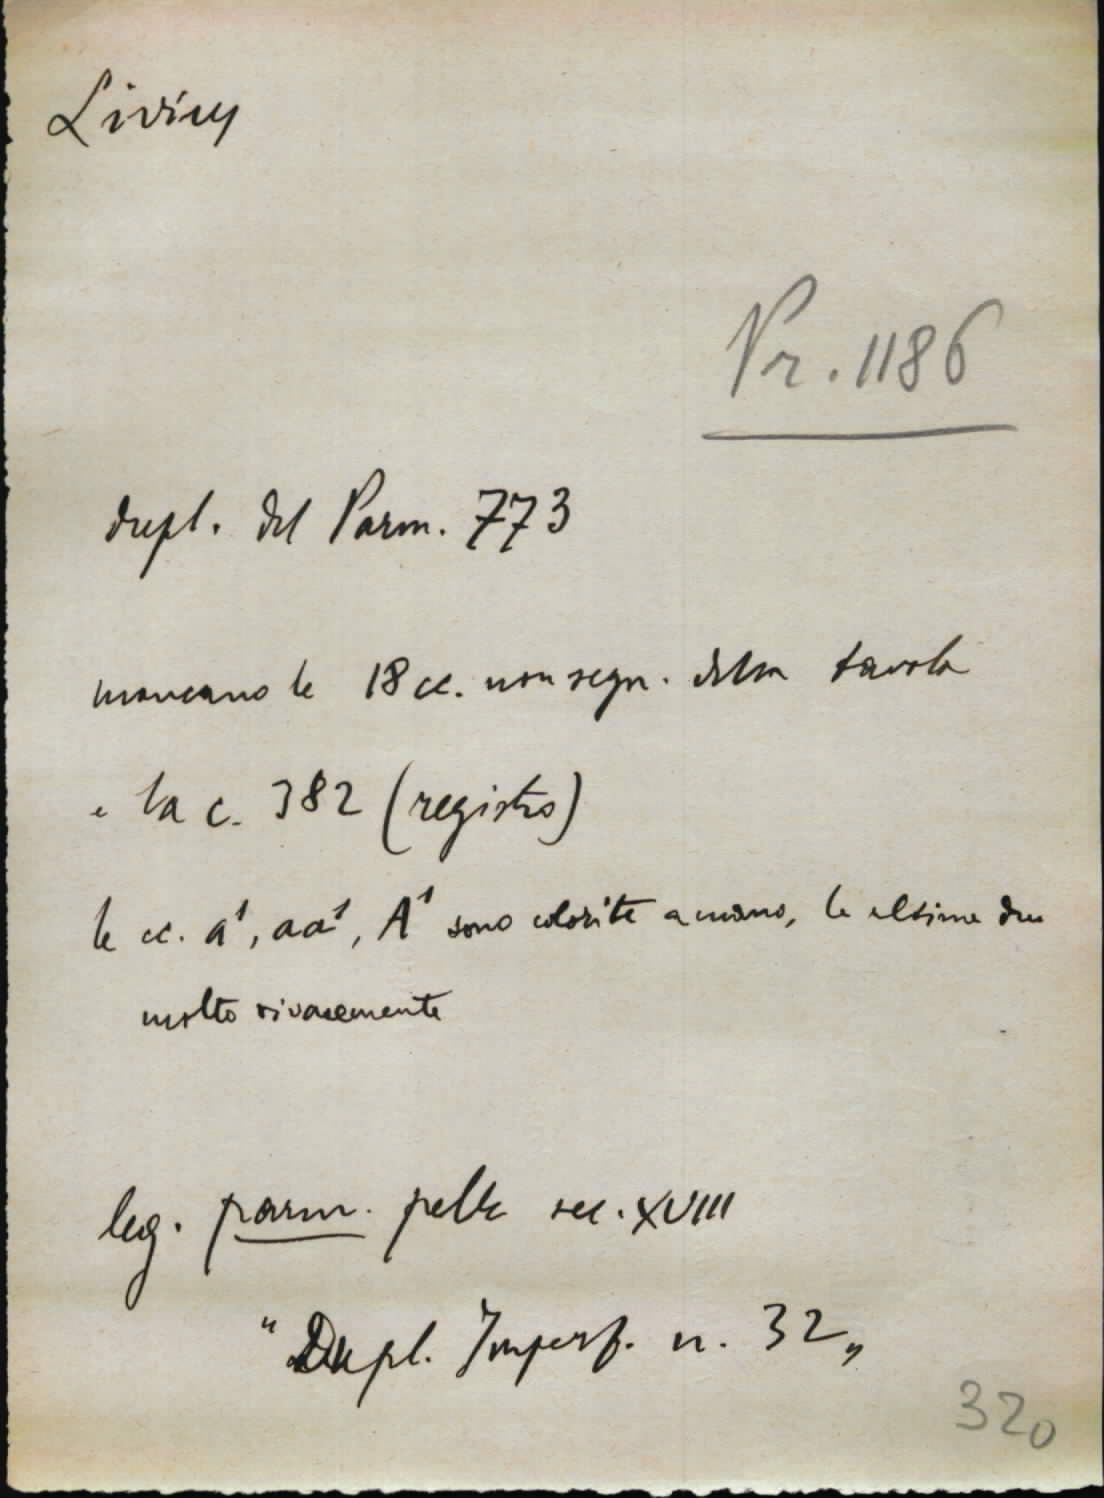 Livius
Pr. 1186
dupl. del Parm. 773
mancano le 18 cc. non segn. della tavola
e la c. 382 (registro)
le cc. a¹, aa¹, A¹ sono colorite a mano, le ultime due
molto vivacemente
leg. parm. pelle sec. XVIII
"Dupl. Imperf. n. 32„
320